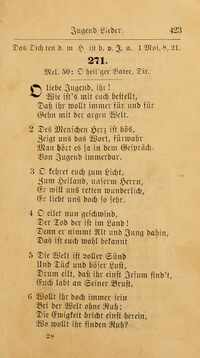 Jugend Lieder. 423
Das Dichten d. m H. ist b. v. J. a. 1 Mos. 8, 21.
271.
Mel. 50: O heil'ger Vater, Dir.
O liebe Jugend, ihr!
Wie ist's mit euch bestellt,
Daß ihr wollt immer für und für
Gehn mit der argen Welt.
2 Des Menschen Herz ist bös,
Zeigt uns das Wort, fürwahr
Man hört es ja in dem Gespräch.
Von Jugend immerdar.
3 O kehret euch zum Licht,
Zum Heiland, unserm Herrn,
Er will uns retten wunderlich,
Er liebt euch doch so gern.
4 O eilet nun geschwind,
Der Tod der ist im Land!
Dann er nimmt Alt und Jung dahin,
Das ist euch wohl bekannt
5 Die Welt ist voller Sünd
Und Tück und böser Lust,
Drum eilt, daß ihr einst Jesum find't,
Euch labt an Seiner Brust.
6 Wollt ihr doch immer sein
Bei der Welt ohne Ruh;
Die Ewigkeit bricht einst herein,
Wo wollt ihr finden Ruh?
28